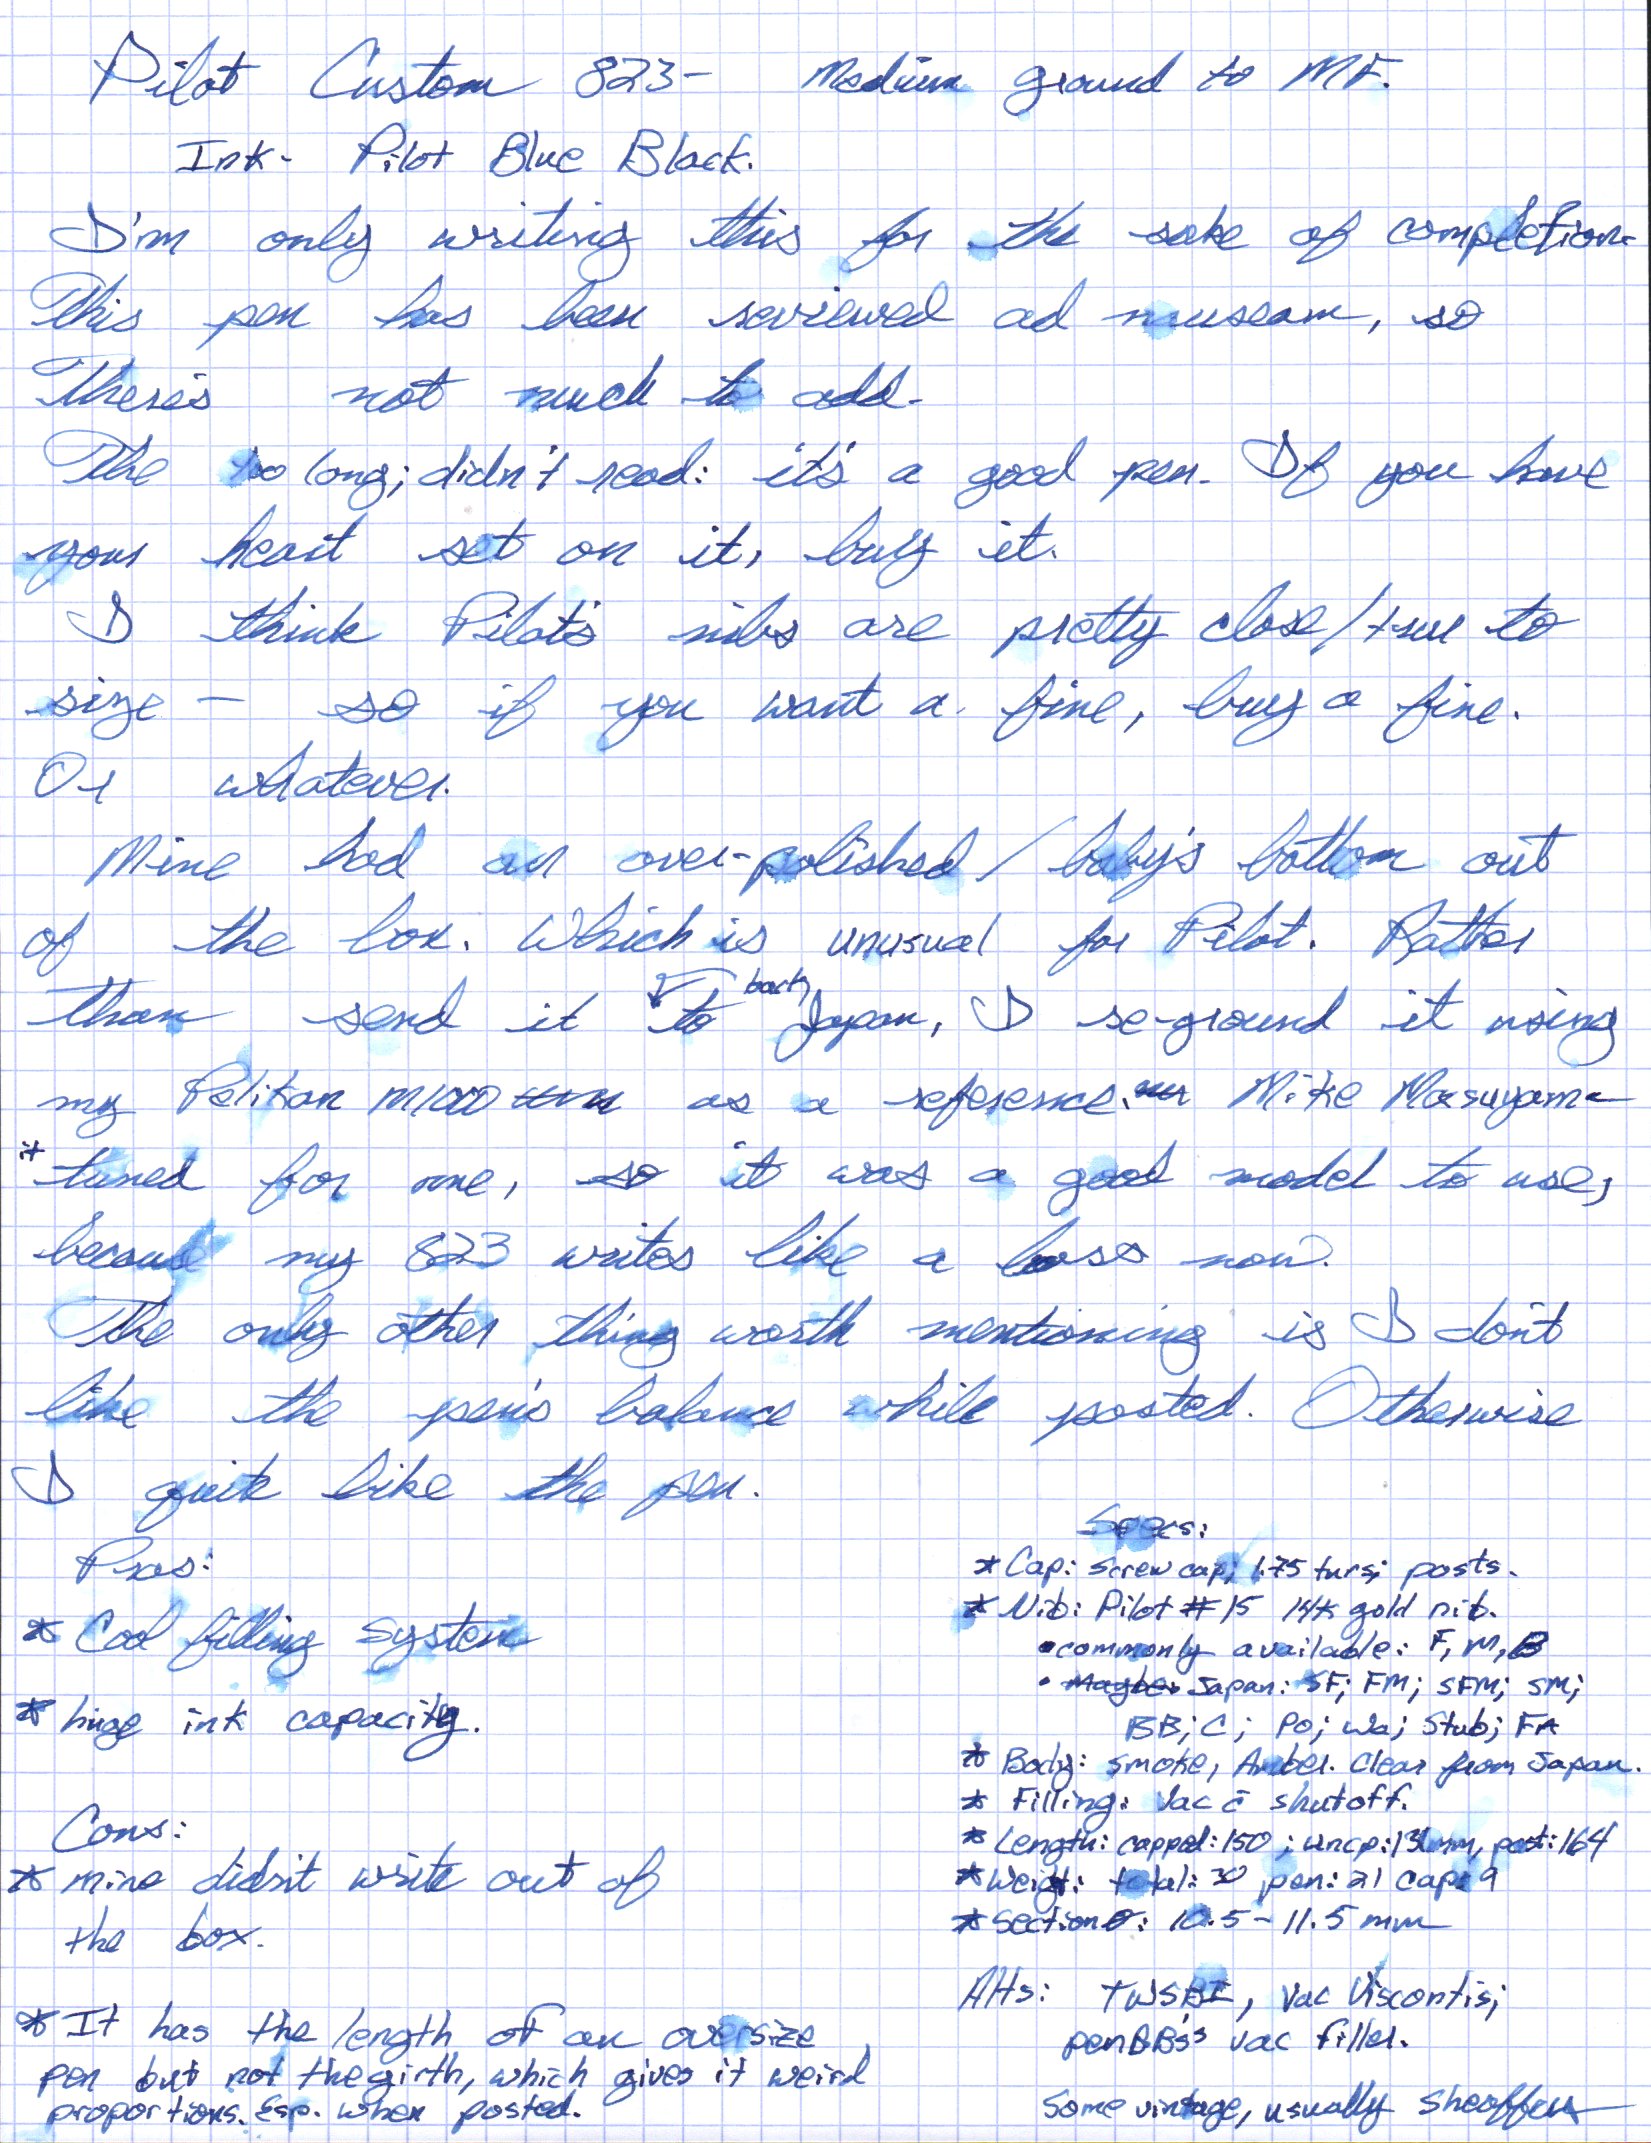 Pilot Custom 823- Medium ground to MF.
Ink- Pilot Blue Black.
I'm only writing this for the sake of completion.
This pen has been reviewed ad nauseam, so
there's not much to add.
The too long; didn't read: it's a good pen. If you have
your heart set on it, buy it.
I think Pilot's nibs are pretty close/true to
size - so if you want a fine, buy a fine.
Or whatever.
Mine had an over-polished / baby's bottom out
of the box. Which is unusual for Pilot. Rather
back
than send it to Japan, I re-ground it using
my Pelikan M1000 as a reference. Mike Masuyama
it
tuned for me, so it was a good model to use,
because my 823 writes like a boss now.
The only other thing worth mentioning is I don't
like the pen's balance while posted. Otherwise
I quite like the pen.
Pros:
* Cool filling system
* huge ink capacity.
Cons:
* mine didn't write out of
the box.
* It has the length of an oversize
pen but not the girth, which gives it weird
proportions. Esp. when posted.
Specs:
* Cap: screw cap; 1.75 turs; posts.
* Nib: Pilot #15 14k gold nib.
• commonly available: F, M, B
• Maybe: Japan: SF; FM; SFM; SM;
BB; C; Po; Wa; Stub; FA
* Body: smoke, Amber. Clear from Japan.
* Filling: Vac c̄ shutoff.
* Length: capped: 150; uncp: mm, post: 164
* Weigt: total: 30 pen: 21 cap: 9
* Section ø: 10.5 - 11.5 mm
Alts: TWSBI, Vac Viscontis;
penBBS's vac filler.
Some vintage, usually Sheaffers